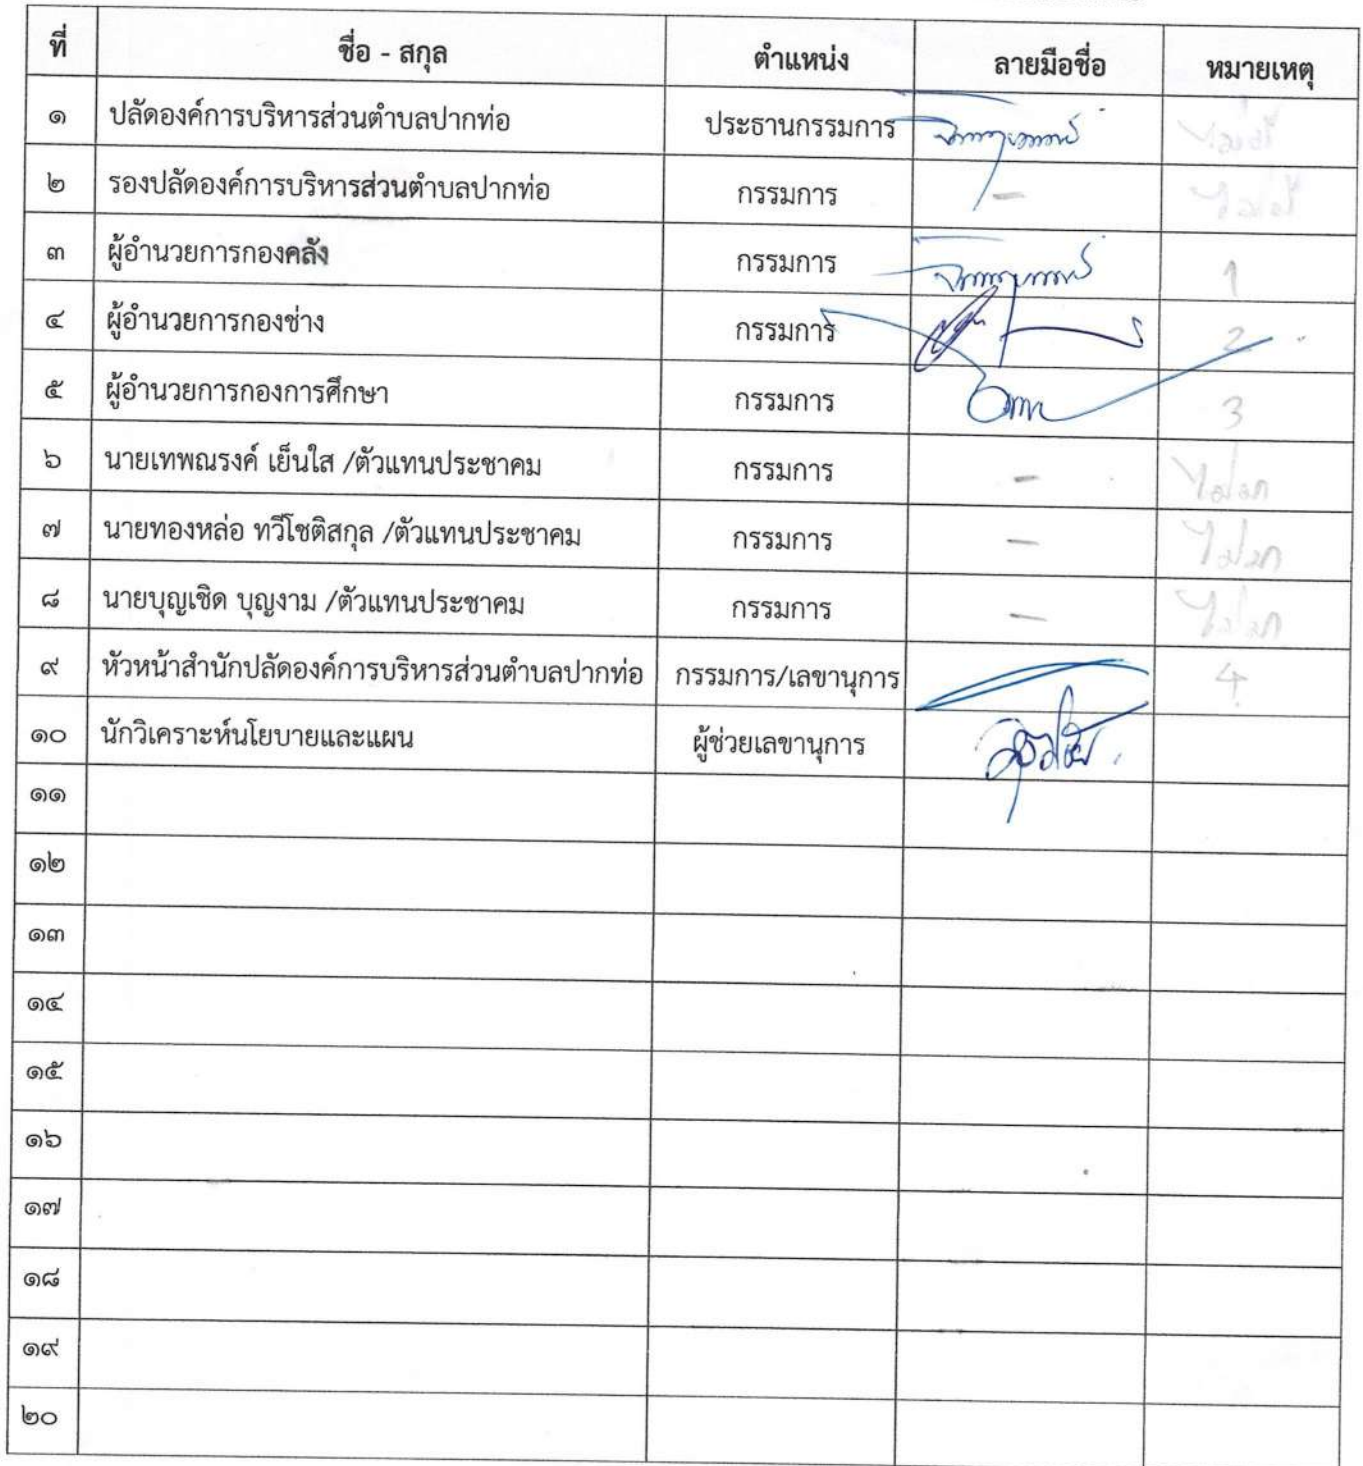 ที่ ชื่อ - สกุล ตำแหน่ง ลายมือชื่อ หมายเหตุ
๑ ปลัดองค์การบริหารส่วนตำบลปากท่อ ประธานกรรมการ
๒ รองปลัดองค์การบริหารส่วนตำบลปากท่อ กรรมการ -
๓ ผู้อำนวยการกองคลัง กรรมการ 1
๔ ผู้อำนวยการกองช่าง กรรมการ 2
๕ ผู้อำนวยการกองการศึกษา กรรมการ 3
๖ นายเทพณรงค์ เย็นใส /ตัวแทนประชาคม กรรมการ - ไม่มา
๗ นายทองหล่อ ทวีโชติสกุล /ตัวแทนประชาคม กรรมการ - ไม่มา
๘ นายบุญเชิด บุญงาม /ตัวแทนประชาคม กรรมการ - ไม่มา
๙ หัวหน้าสำนักปลัดองค์การบริหารส่วนตำบลปากท่อ กรรมการ/เลขานุการ 4
๑๐ นักวิเคราะห์นโยบายและแผน ผู้ช่วยเลขานุการ
๑๑
๑๒
๑๓
๑๔
๑๕
๑๖
๑๗
๑๘
๑๙
๒๐